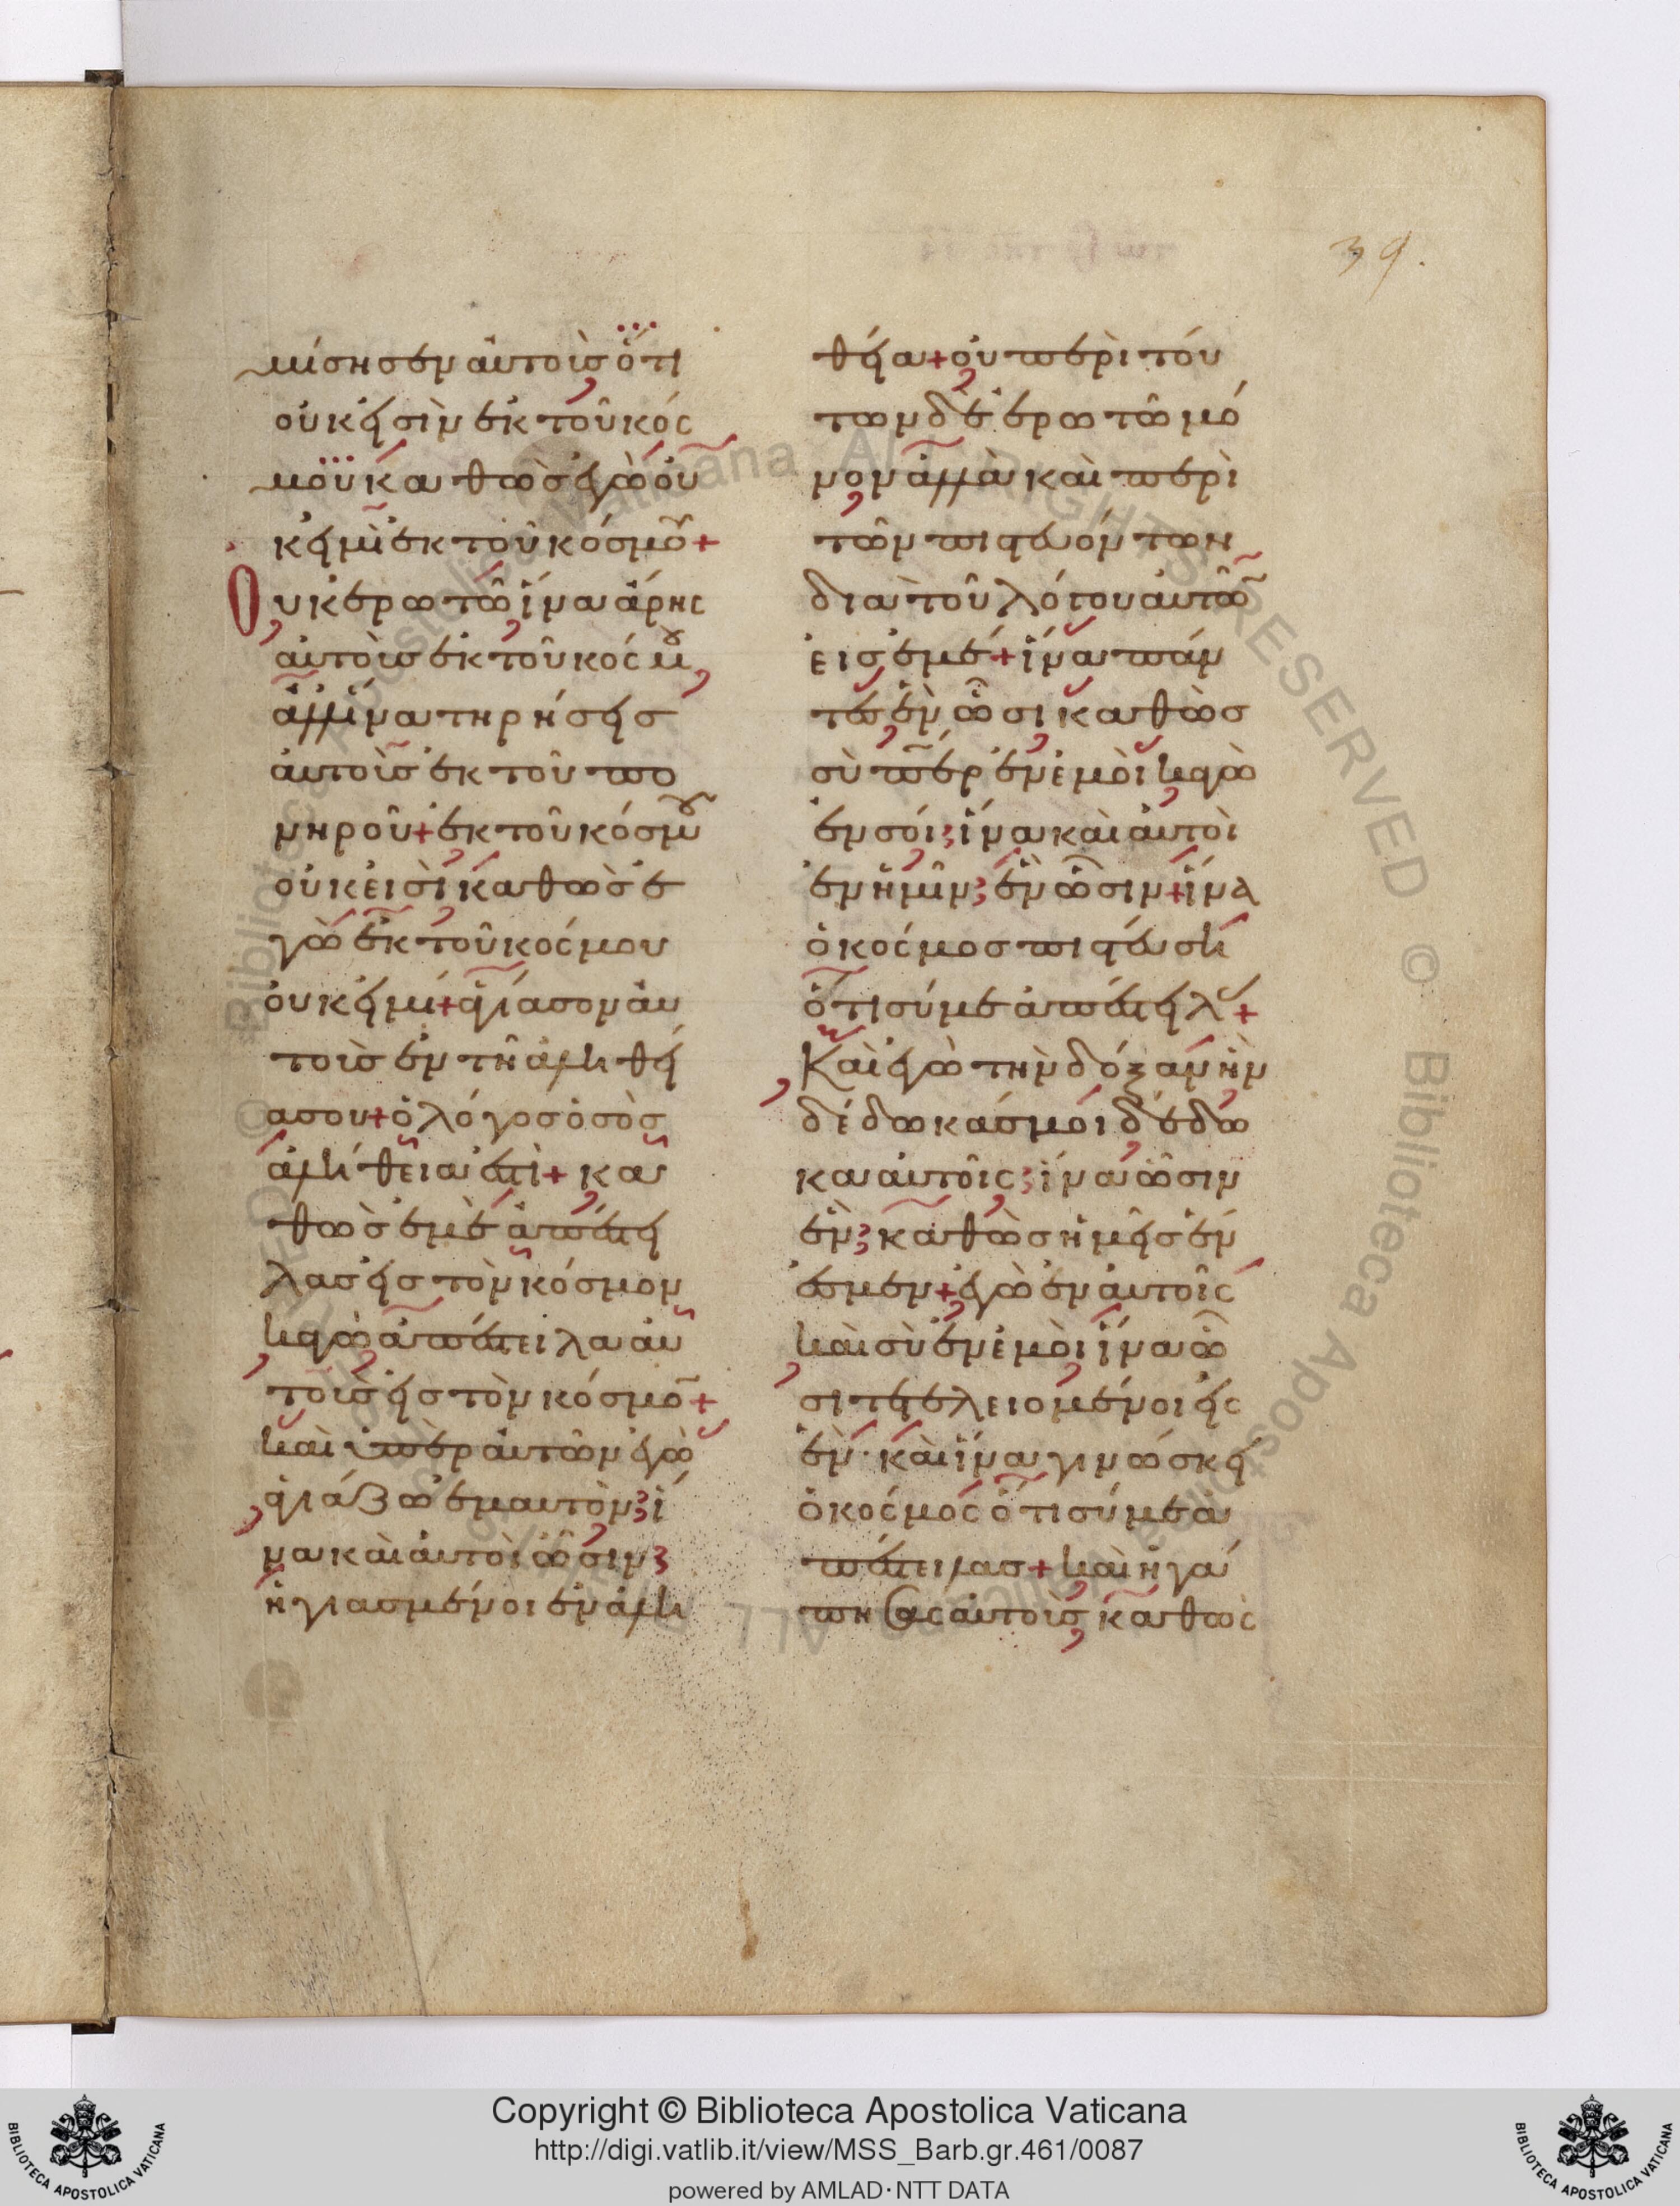 39.
μίσησεν αὐτοὺσ ὅτι
οὐκ εἰσὶν ἐκ τοῦ κόσ
μου καθὼσ ἐγὼ οὐ
κ εἰμὶ ἐκ τοῦ κόσμου+
Οὐκ ἐρωτῶ ἵνα ἄρης
αὐτοὺσ ἐκ τοῦ κόσμου
ἀλλ' ἵνα τηρήσεισ
αὐτοὺσ ἐκ τοῦ πο
νηροῦ+ ἐκ τοῦ κόσμου
οὐκ εἰσὶ καθὼσ ἐ
γὼ ἐκ τοῦ κοσμου
οὐκ εἰμί+ ἁγίασον αὐ
τοὺσ ἐν τῆ ἀληθεί
α σου+ ὁ λόγοσ ὁ σὸσ
ἀλήθεια ἐστὶ+ κα
θὼσ ἐμὲ ἀπέστει
λασ εἰσ τὸν κόσμον
κἀγὼ ἀπέστειλα αὐ
τοὺσ εἰσ τὸν κόσμο̄+
καὶ ὑπὲρ αὐτῶν ἐγὼ
ἁγιάζω ἐμαυτὸν ἵ
να καὶ αὐτοὶ ὦσιν
ἡγιασμένοι ἐν ἀλη
θεία+ οὐ περὶ τού
των δὲ ἐρωτῶ μό
νον ἀλλὰ καὶ περὶ
τῶν πιστευόντων
δια τοῦ λόγου αὐτῶ̄
εἰσ ἐμέ+ ἵνα πάν
τεσ ἓν ὦσι καθὼσ
σὺ π̄ερ ἐν ἐμοὶ κἀγὼ
ἐν σοί ἵνα καὶ αὐτοὶ
ἐν ἡμῖν ἓν ὦσιν+ ἵνα
ὁ κόσμοσ πιστεύση
ὅτι σύ με ἀπέστειλ+
Καὶ ἐγὼ τὴν δόξαν ἣν
δέδωκάσ μοι δέδω
κα αὐτοῖς ἵνα ὦσιν
ἓν καθὼσ ἡμεῖσ ἕν
ἐσμεν+ ἐγὼ ἐν αὐτοῖς
καὶ σὺ ἐν ἐμοὶ ἵνα ὦ
σι τετελειομένοι εἰς
ἕν· καὶ ἵνα γινώσκει
ὁ κόσμος ὅτι σύ με ἀ
πέστειλασ+ καὶ ἠγά
πησας αὐτοὺσ καθὼς
© Biblioteca Apostolica Vaticana ALL RIGHTS RESERVED
Copyright © Biblioteca Apostolica Vaticana
http://digi.vatlib.it/view/MSS_Barb.gr.461/0087
powered by AMLAD·NTT DATA
BIBLIOTECA APOSTOLICA VATICANA
BIBLIOTECA APOSTOLICA VATICANA